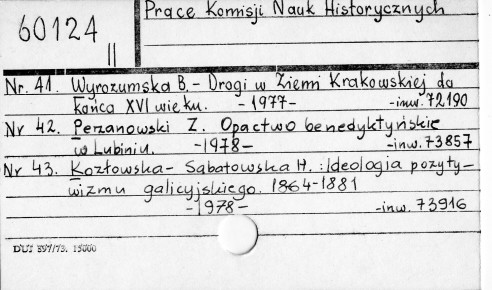 60124
II
Prace Komisji Nauk Historycznych
Nr. 41. Wyrozumska B. - Drogi w Ziemi Krakowskiej do
końca XVI wieku. - 1977 - -inw. 72190
Nr 42. Perzanowski Z. Opactwo benedyktyńskie
w Lubiniu. -1978- -inw. 73857
Nr 43. Kozłowska - Sabatowska H. : Ideologia pozyty-
wizmu galicyjskiego. 1864-1881
-1978- -inw. 73916